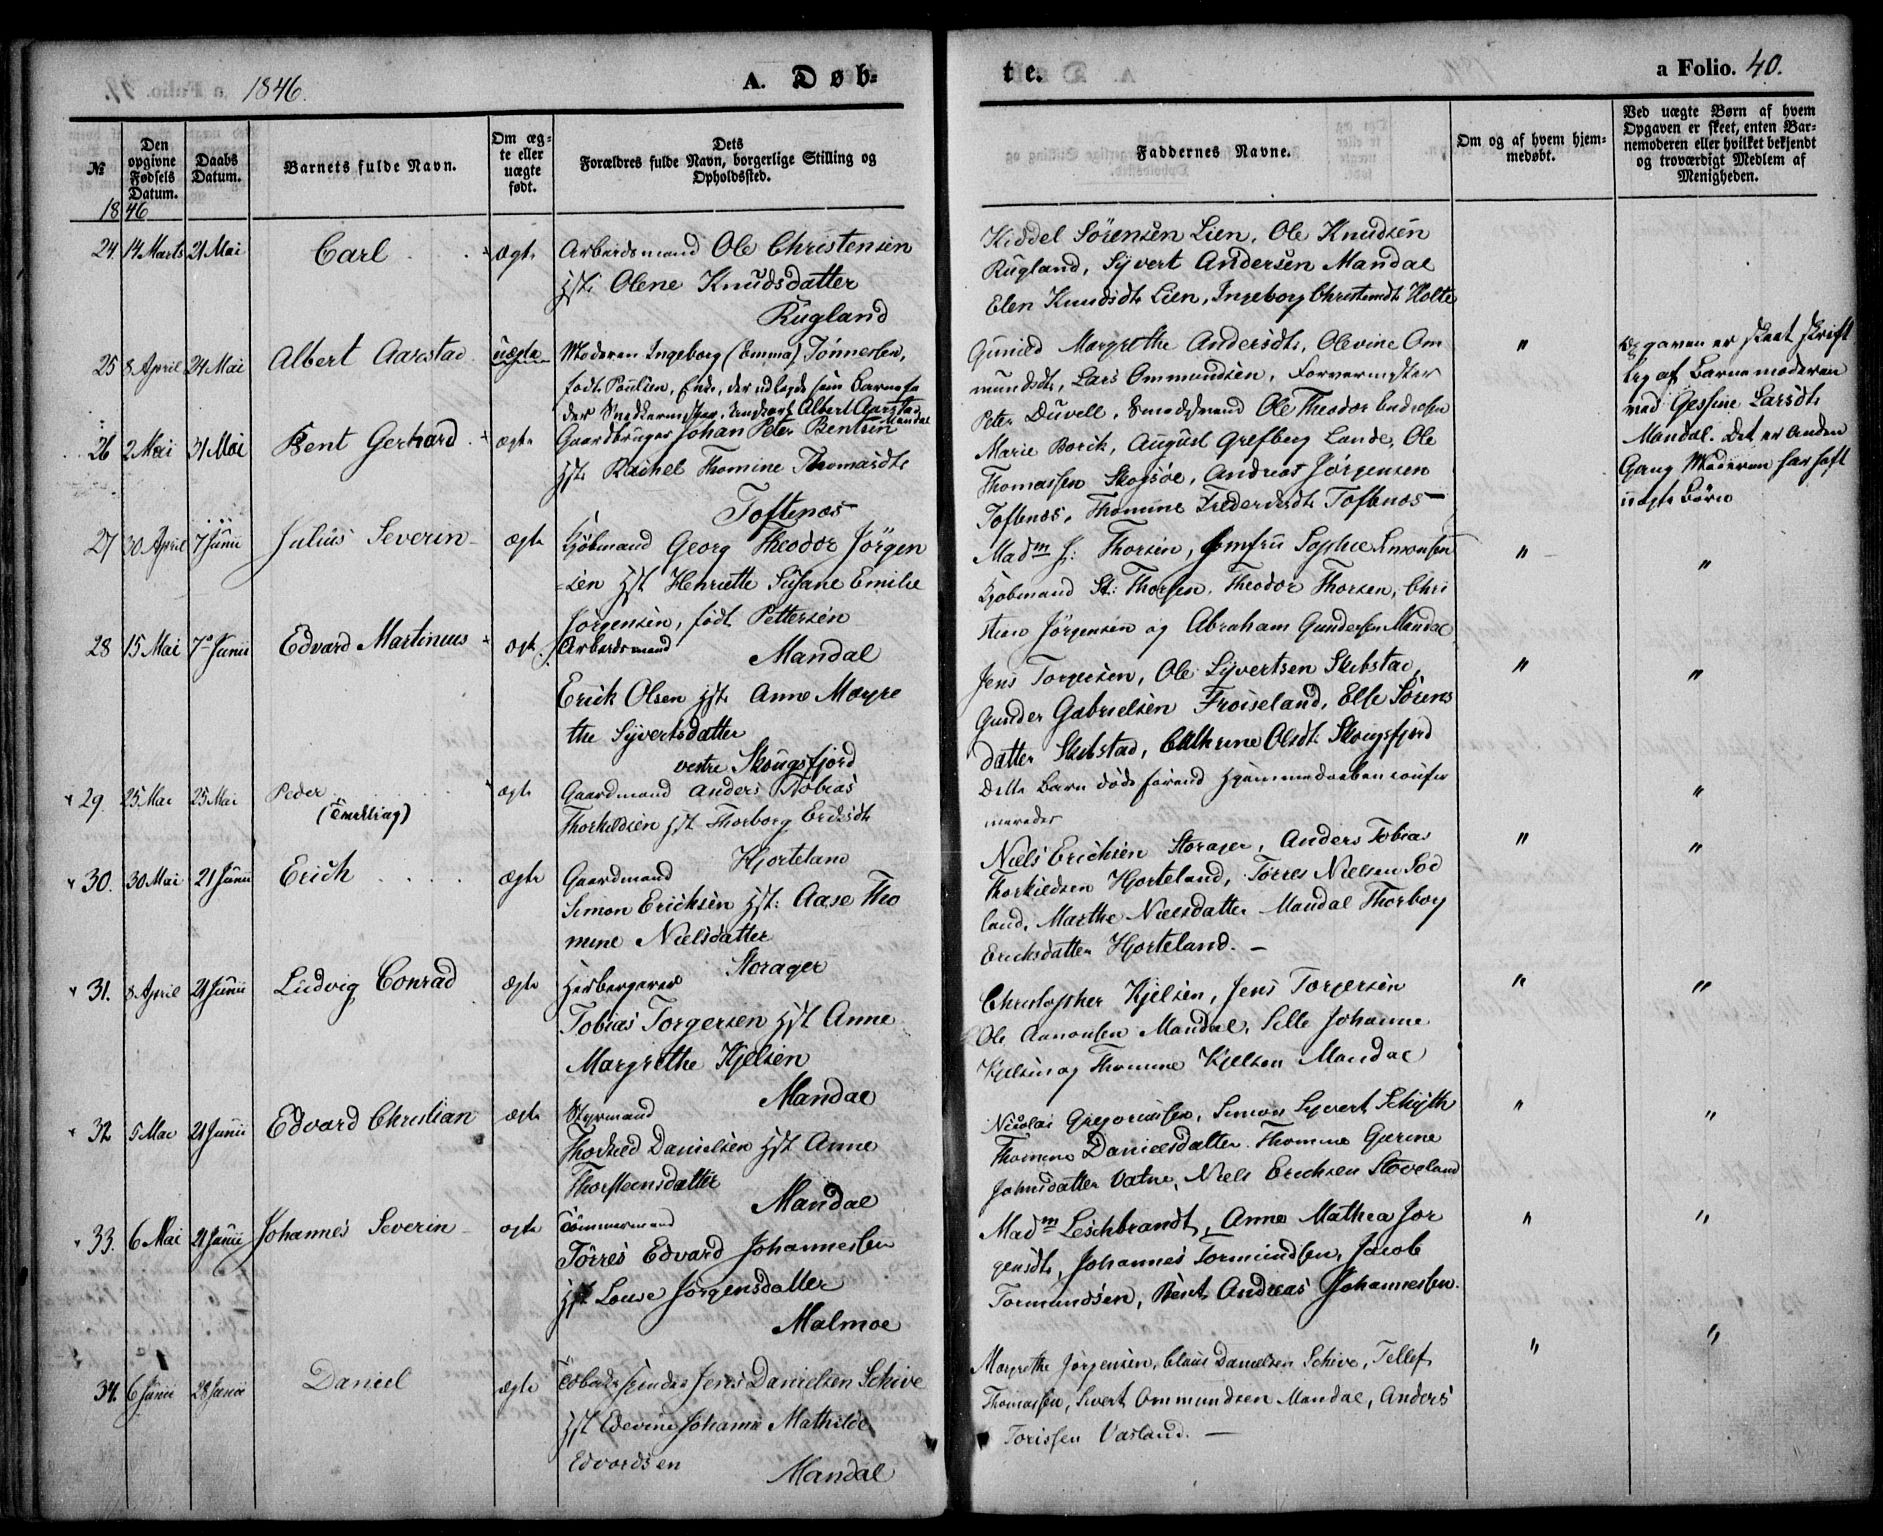 1846.
A. Døb-
te.
a Folio. 40.
№
Den opgivne Fødsels Datum.
Daabs Datum.
Barnets fulde Navn.
Om ægte eller uægte født.
Dets Forældres fulde Navn, borgerlige Stilling og Opholdssted.
Faddernes Navne.
Om og af hvem hjemmedøbt.
Ved uægte Børn af hvem Opgaven er skeet, enten Barnemoderen eller hvilket bekjendt og troværdigt Medlem af Menigheden.
1846
24. 14 Marts 21 Mai Carl ægte Arbeidsmand Ole Christensen
Hst: Olene Knudsdatter
Rugland
Kiddel Sörensen Lien, Ole Knudsen
Rugland, Syvert Andersen Mandal
Elen Knudsdt: Lien, Ingeborg Christensdt: Holte
25 8 April 24 Mai Albert Aarstad uægte Moderen Ingeborg (Emma) Tönnessen,
født Poulsen, Enke, der udlagde som Barnefa
der Snedkermester, Ungkarl Albert Aarstad
Mandal
Gunild Margrethe Andersdt:, Olevine Om
mundsdt:, Lars Ommundsen, Farvermester
Peter Duvell, Smedsvend Ole Theodor
"
Opgaven er skeet skrift
lig af Barnemoderen
ved Gessine Larsdt:
Mandal. Det er Anden
Gang Moderen har havt
uægte Børn
26 2 Mai 31 Mai Bent Gerhard ægte Gaardbruger Johan Peter Bentsen
Hst: Rachel Thomine Thomasdt:
Toftenæs
Marie Borck, August Grefberg Lande, Ole
Thomassen Skogsøe, Andreas Jörgensen
Toftenæs, Thomine Frederiksdt: Toftenæs
27 30 April 7 Junii Julius Severin ægte Kjøbmand Georg Theodor Jörgen
=sen Hst: Henriette Susane Emilie
Jörgensen, født Pettersen
Mandal
Madm: Thorsen, Jomfru Sophie Simonsen
Kjøbmand St: Thorsen, Theodor Thorsen, Chri
stian Jörgensen og Abraham Gundersen Mandal
"
"
28 15 Mai 7de Junii Edvard Martinius ægte Arbeidsmand
Erick Olsen Hst: Anne Margre
the Syvertsdatter
vestre Skougsfjord
Jens Torgersen, Ole Syvertsen Skibstad,
Gunder Gabrielsen Frøiseland, Else Sörens
datter Skibstad, Cathrine Olsdt: Skougsfjord
"
"
29. 25 Mai 25 Mai Peder
(Tvilling)
ægte Gaardmand Anders Tobias
Thorkildsen Hst: Thorborg Ericksdt:
Hjorteland
Dette Barn døde førend Hjemmedaaben confir
meredes
"
30. 30 Mai 21 Junii Erich ægte Gaardmand
Simon Erichsen Hst: Aase Tho
mine Nielsdatter
Storager
Niels Erichsen Storager, Anders Tobias
Thorkildsen Hjorteland, Törres Nielsen Sod
land, Marthe Nielsdatter Mandal Thorborg
Ericksdatter Hjorteland. —
"
"
31. 8 April 21 Junii Ludvig Conrad ægte Herbergerer
Tobias Torgersen Hst: Anne
Margrethe Kjelsen
Mandal
Christopher Kjelsen, Jens Torgersen
Ole Aanonsen Mandal, Sille Johanne
Kjelsen og Thomine Kjelsen Mandal
"
"
32 5 Mai 21 Junii Edvard Christian ægte Styrmand
Thorkild Danielsen Hst: Anne
Thorsteensdatter
Mandal
Nicolai Gregoriussen, Simon Syvert Schyth
Thomine Danielsdatter, Thomine Gurine
Johnsdatter Vatne, Niels Erichsen Stoveland
"
"
33. 6 Mai 21 Junii Johannes Severin ægte Tömmermand
Törres Edvard Johannessen
Hst: Louise Jörgensdatter
Malmoe
Madm Leschbrandt, Anne Mathea Jör
gensdt:, Johannes Tormundsen, Jacob
Tormundsen, Bent Andreas Johannessen.
"
"
34. 6 Junii 28 Junii Daniel ægte Tobakspinder Jens Danielsen Schive
Hst: Edevine Johanne Mathilde
Edvardsen
Mandal
Margrethe Jörgensen, Claus Danielsen Schive, Tellef
Thomassen, Sivert Ommundsen Mandal, Anders
Torissen Vasland. —
"
"